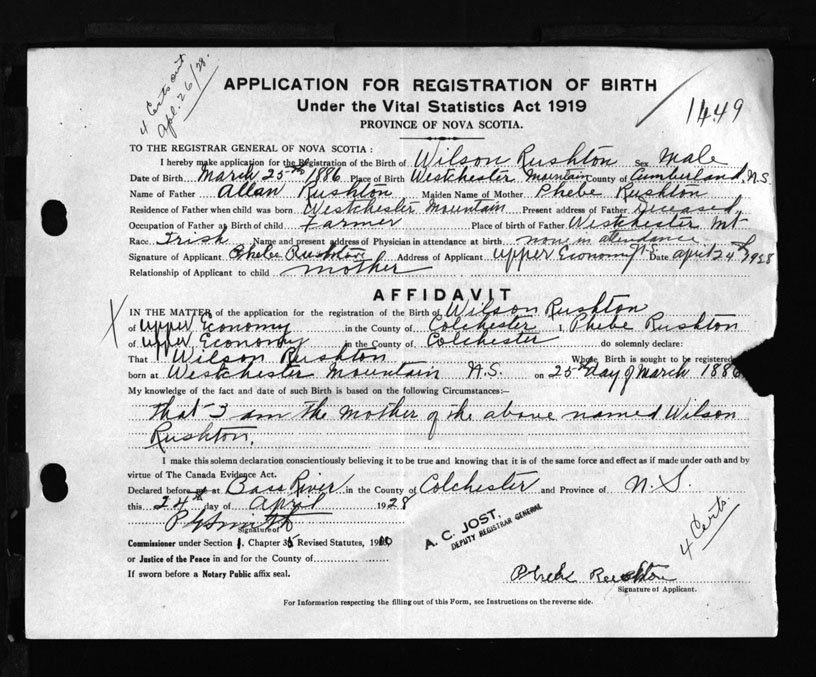 4 Certs out
Apl. 26/28.
APPLICATION FOR REGISTRATION OF BIRTH
1449
Under the Vital Statistics Act 1919
PROVINCE OF NOVA SCOTIA.
TO THE REGISTRAR GENERAL OF NOVA SCOTIA :
I hereby make application for the Registration of the Birth of Wilson Rushton Sex Male
Date of Birth March 25th 1886 Place of Birth Westchester Mountain County of Cumberland, N.S.
Name of Father Allan Rushton Maiden Name of Mother Phebe Rushton
Residence of Father when child was born Westchester Mountain Present address of Father Deceased
Occupation of Father at Birth of child Farmer Place of birth of Father Westchester Mt
Race Irish Name and present address of Physician in attendance at birth none in attendance
Signature of Applicant Phebe Rushton Address of Applicant Upper Economy N.S. Date April 24th 1928
Relationship of Applicant to child mother
AFFIDAVIT
IN THE MATTER of the application for the registration of the Birth of Wilson Rushton
of Upper Economy in the County of Colchester I, Phebe Rushton
of Upper Economy in the County of Colchester do solemnly declare:
That Wilson Rushton Whose Birth is sought to be registered
born at Westchester Mountain N.S. on 25th day of March 1886
My knowledge of the fact and date of such Birth is based on the following Circumstances:—
That I am the Mother of the above named Wilson
Rushton.
I make this solemn declaration conscientiously believing it to be true and knowing that it is of the same force and effect as if made under oath and by
virtue of The Canada Evidence Act.
Declared before at Bass River in the County of Colchester and Province of N.S.
this 24th day of April 1928
Signature of
A. C. JOST,
DEPUTY REGISTRAR GENERAL
4 Certs.
Commissioner under Section 1, Chapter 35 Revised Statutes, 1900
or Justice of the Peace in and for the County of
If sworn before a Notary Public affix seal.
Phebe Rushton
Signature of Applicant.
For Information respecting the filling out of this Form, see Instructions on the reverse side.